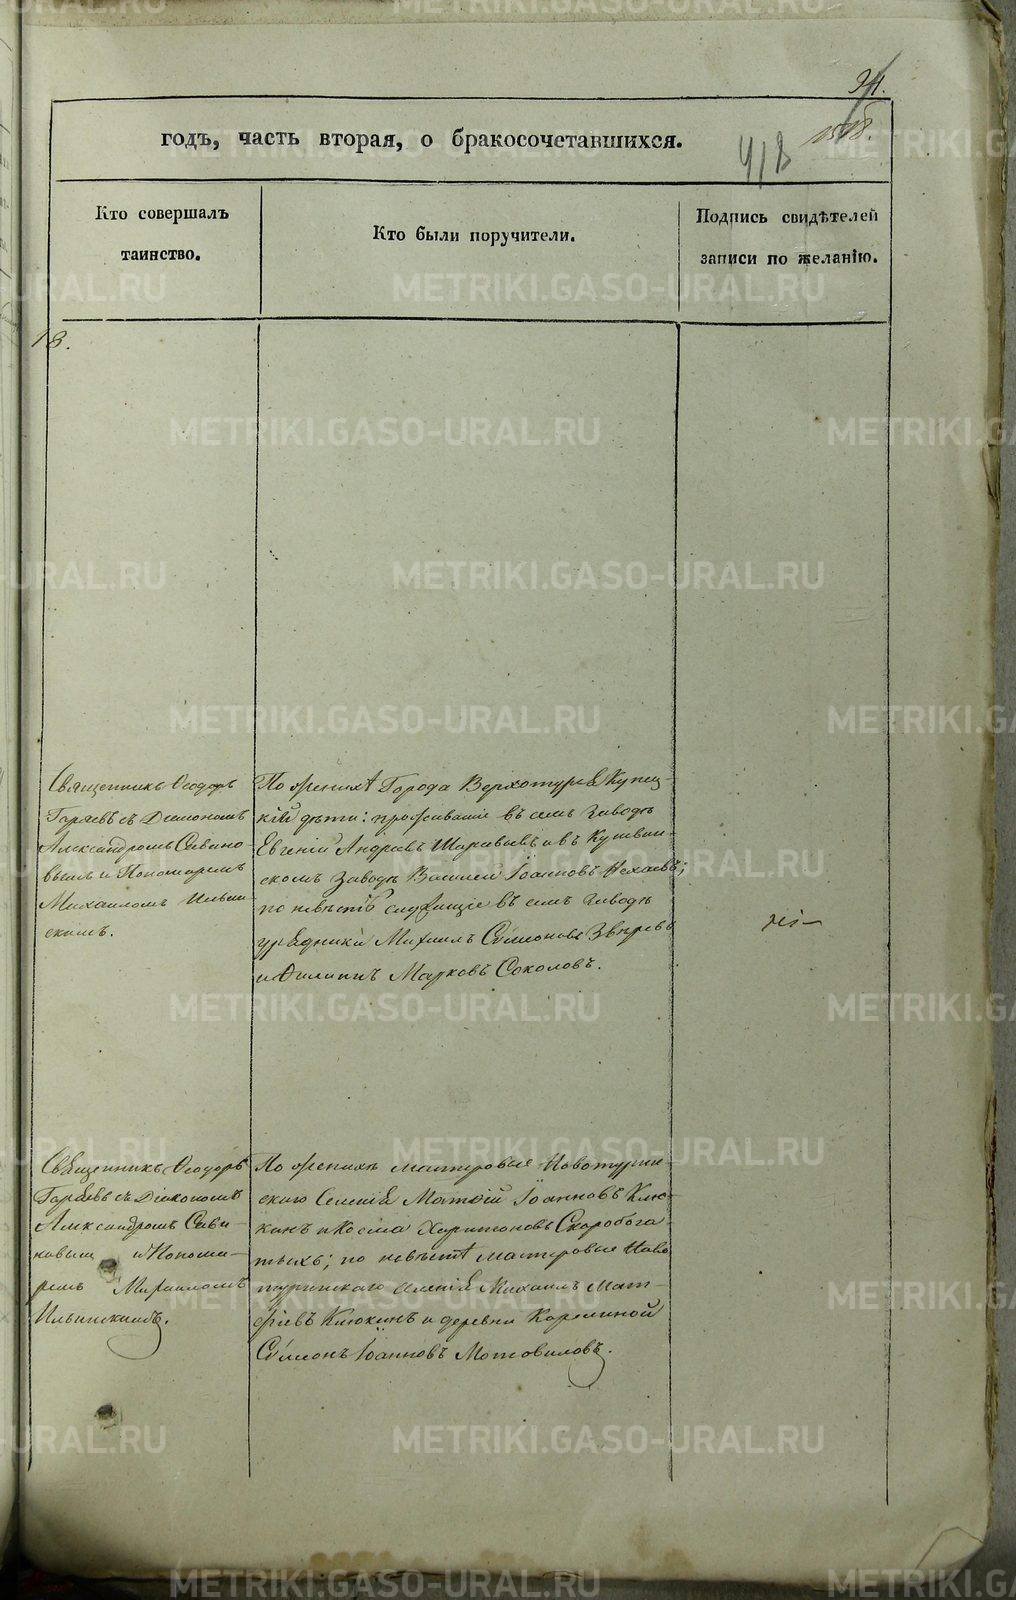 94.
годъ, часть вторая, о бракосочетавшихся.
418
Кто совершалъ
таинство.
Кто были поручители.
Подпись свидѣтелей
записи по желанію.
18.
Священникъ Ѳеодоръ
Гаряевъ съ Діакономъ
Александромъ Савино-
вымъ и Пономаремъ
Михаиломъ Ильин-
скимъ.
По женихѣ Города Верхотурья Купец-
кій дѣти: проживаніе въ семъ Заводѣ
Евгеній Андреевъ и въ Кушвин-
скомъ Заводѣ Василей Іоанновъ Нехаевъ;
по невѣстѣ служащіе въ семъ Заводѣ
урядники Михаилъ Сѵмеоновъ Звѣревъ
и Филиппъ Марковъ Соколовъ.
Священникъ Ѳеодоръ
Гаряевъ съ Діакономъ
Александромъ Сави-
новымъ и Понома-
ремъ Михаиломъ
Ильинскимъ.
По женихѣ мастеровые Новотурин-
скаго Селенія Матѳій Іоанновъ Клю-
кинъ и Косма Харитоновъ Скоробога-
тыхъ; по невѣстѣ мастеровые Ново
туринскаго селенія Михаилъ Мат-
ѳіевъ Клюкинъ и деревни Корелиной
Сѵмеонъ Іоанновъ Мотовиловъ.
METRIKI.GASO-URAL.RU